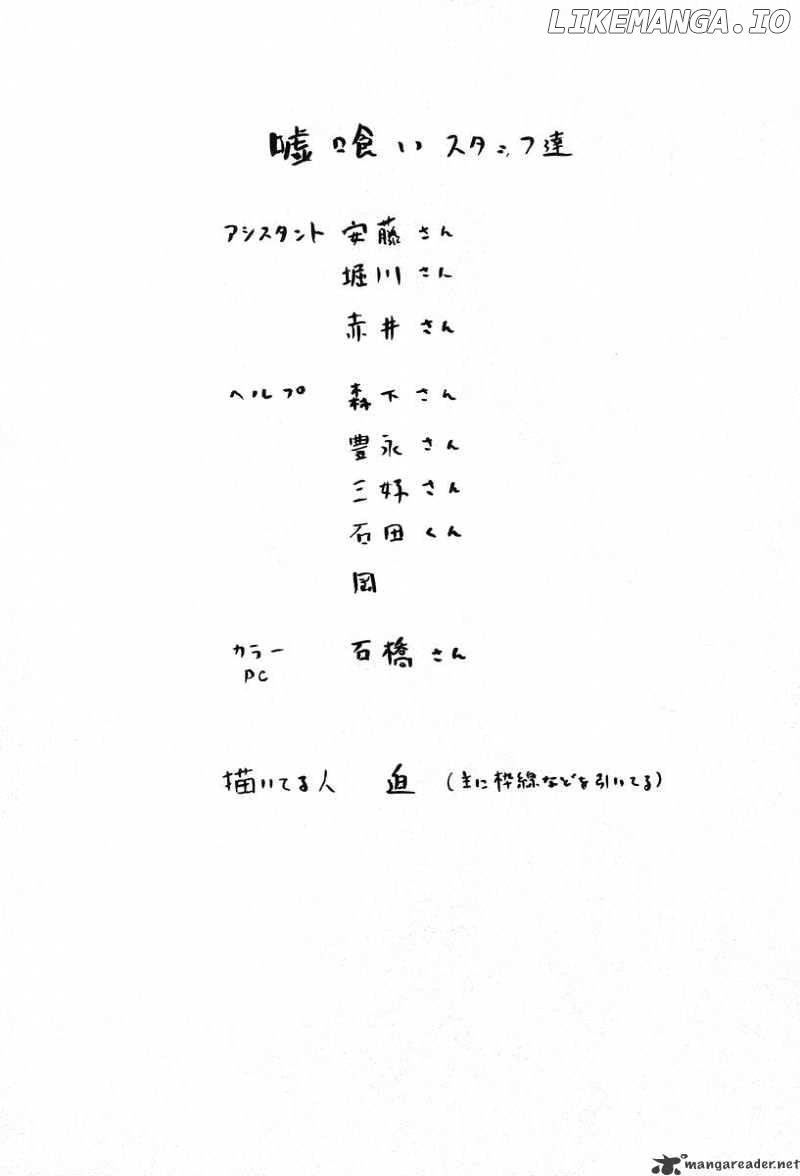 LIKEMANGA.IO
嘘喰いスタッフ達
アシスタント 安藤さん
堀川さん
赤井さん
ヘルプ 森下さん
豊永さん
三好さん
石田くん
岡
カラーPC 石橋さん
描いてる人 迫 (主に枠線などを引いてる)
mangareader.net